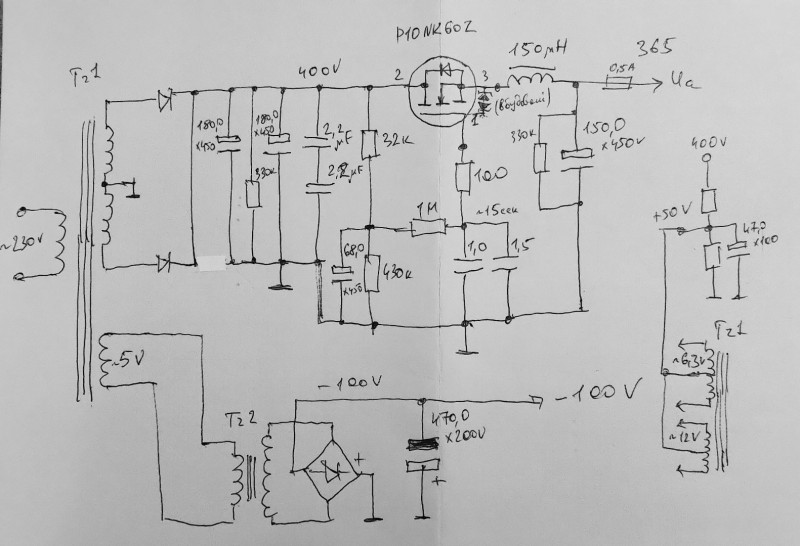 P10NK60Z
Tr1
400V
2
3
150μH
365
0,5A
Ua
1
(вбудовані)
180,0
x450
180,0
x450
330к
2,2
μF
2,2
μF
32к
100
330к
150,0
x450V
1М
~15сек
68,0
x450
430к
1,0
1,5
~230V
~5V
400V
+50V
47,0
x100
Tr1
~6,3V
~12V
Tr2
-100V
-100V
470,0
x200V
+
+